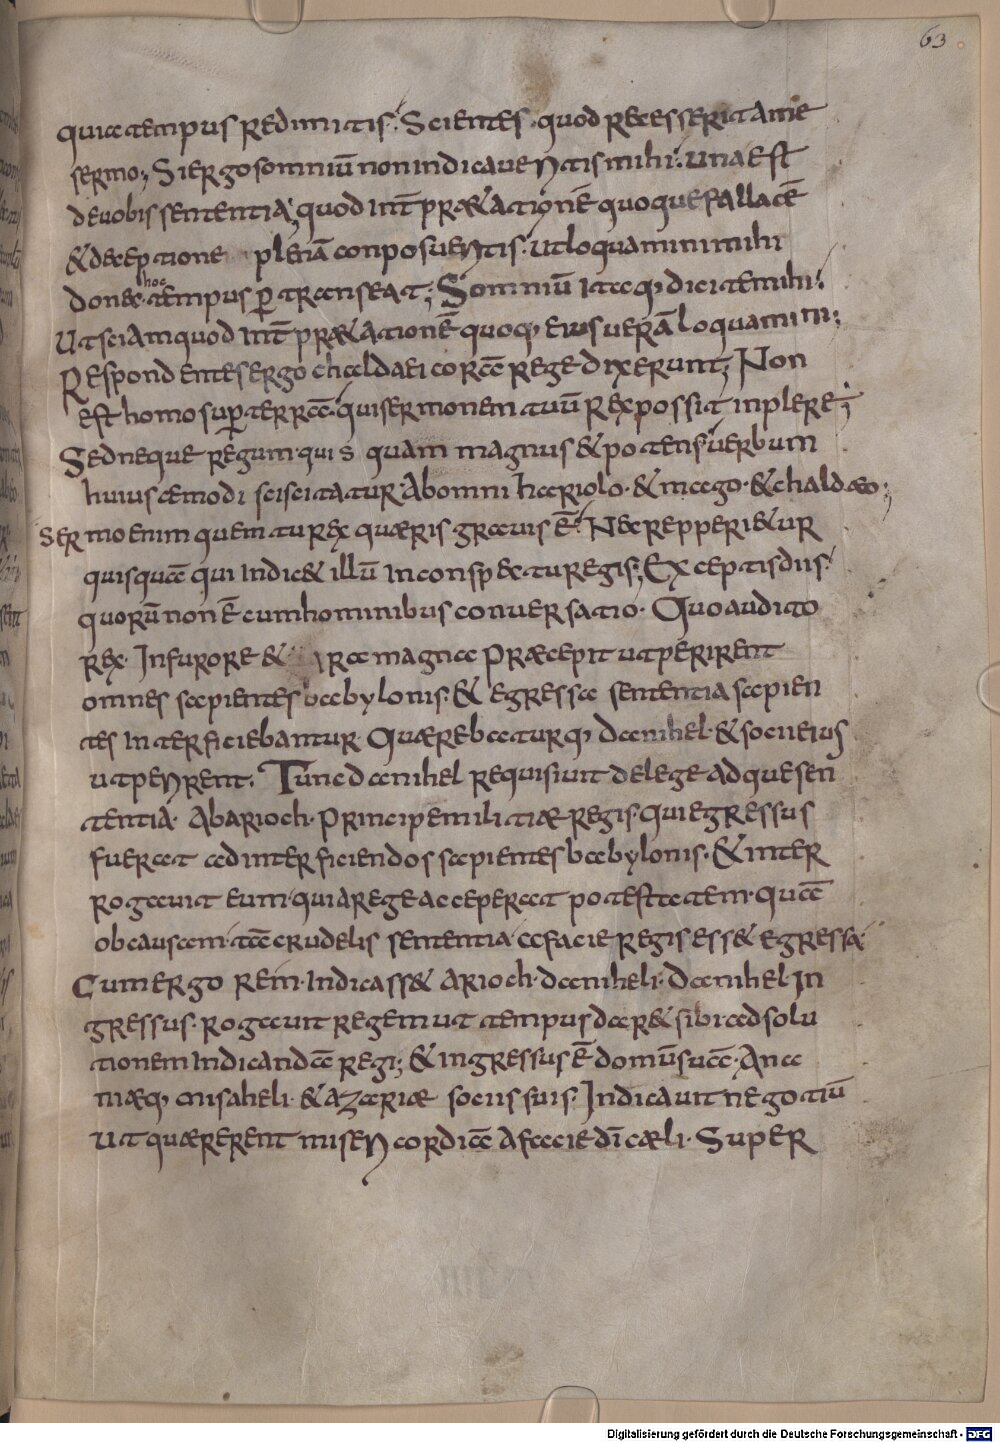 63
quia tempus redimitis. Scientes. quod recesserit ame
sermo; Si ergo somniū non indicaueritis mihi. una est
deuobis sententia; quod int̄pr&ationē quoque fallacē
& deceptione plenā conposueritis. ut loquamini mihi
donec hoc tempus ꝑtranseat; Somniū itaq; dicite mihi.
Ut sciam quod int̄pr&ationē quoq; eius uerā loquamini;
Respondentes ergo chaldaei corā rege dixerunt; Non
est homo suꝑ terrā. qui sermonem tuū rex possit inplere;
Sed neque regum quis quam magnus & potens uerbum
huiuscemodi sciscitatur. Ab omni hariolo. & mago. & chaldæo;
Sermo enim quem tu rex quæris grauis ē. Nec repperi&ur
quisquā qui indic& illū inconspectu regis; Exceptis diis.
quorū non ē cum hominibus conuersatio. Quo audito
rex. Infurore & ira magna Præcepit ut perirent
omnes sapientes babylonis. & egressa sententia sapien
tes interficiebantur. Quærebaturq; danihel. & socii eius
ut perirent. Tunc danihel requisiuit delege adque sen
tentia. Abarioch. Principe militiæ regis. qui egressus
fuerat ad interficiendos sapientes babylonis. & inter
rogauit eum. qui arege acceperat potestatem. quā
ob causam. tā crudelis sententia afacie regis ess& egressa.
Cum ergo rem. Indicass& arioch. daniheli. Danihel in
gressus. rogauit regem ut tempus dar& sibi. ad solu
tionem indicandā regi; & ingressus ē domū suā. Ana
niæq; misaheli. & azariæ sociis suis. Indicauit negotiū
ut quærerent misericordiā afacie dī cæli. Super
Digitalisierung gefördert durch die Deutsche Forschungsgemeinschaft - DFG